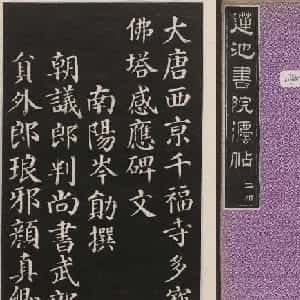 大唐西京千福寺多寶
佛塔感應碑文
南陽岑勛撰
朝議郎判尚書武部
員外郎琅邪顏真卿
蓮池書院法帖